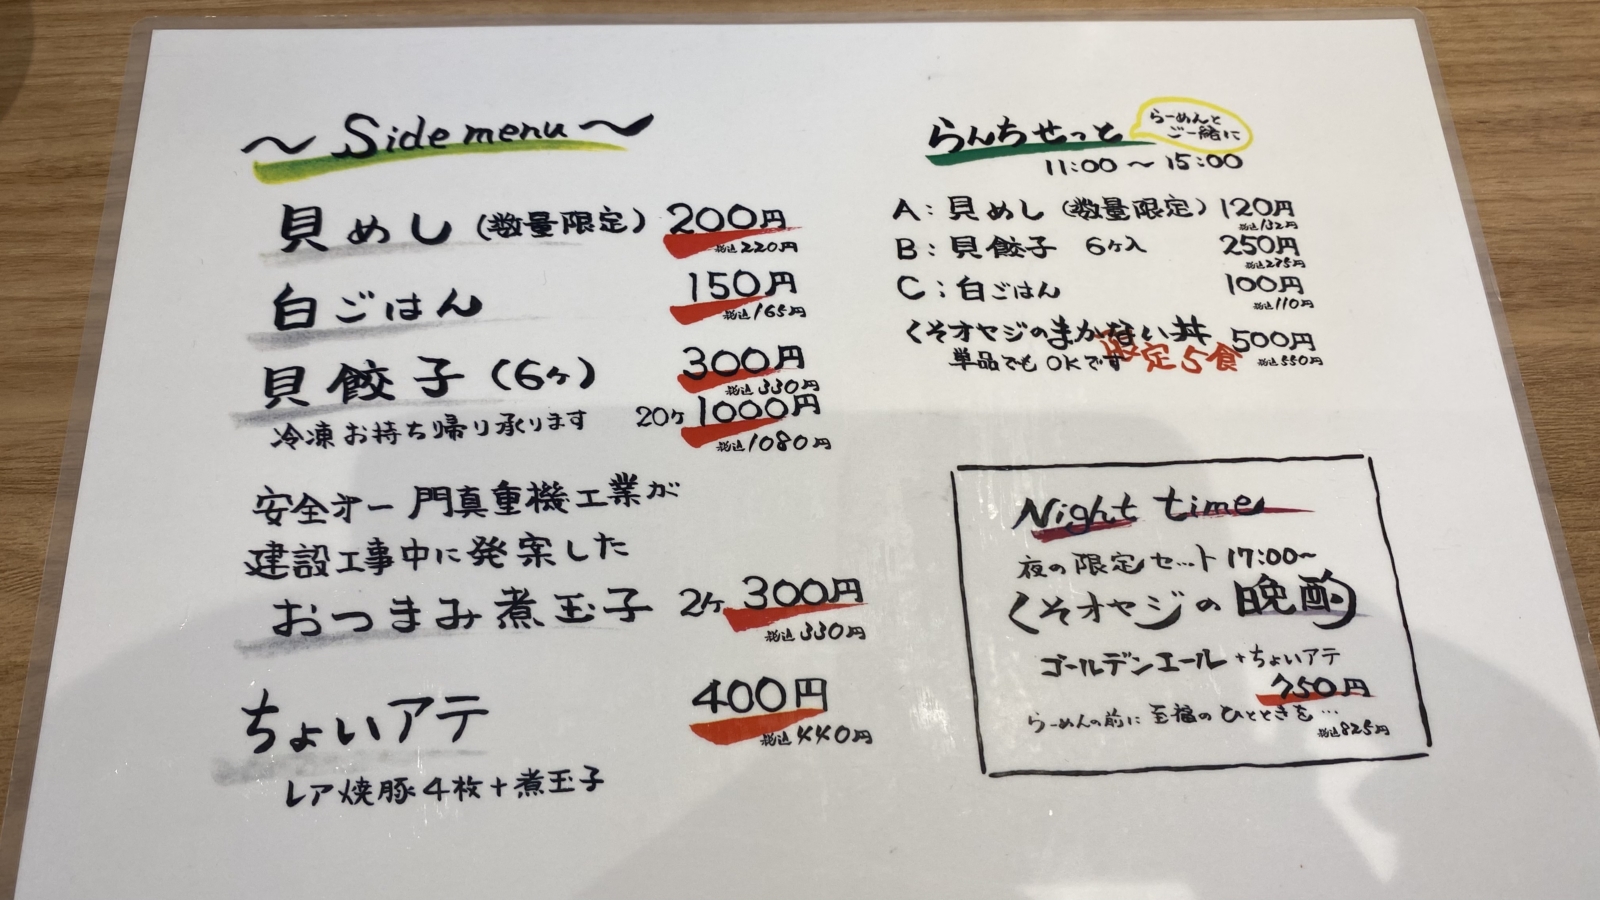 ～ Side menu ～
貝めし (数量限定) 200円
税込220円
白ごはん 150円
税込165円
貝餃子 (6ヶ) 300円
税込330円
冷凍お持ち帰り承ります 20ヶ 1000円
税込1080円
安全才一 門真重機工業が
建設工事中に発案した
おつまみ煮玉子 2ヶ 300円
税込330円
ちょいアテ 400円
税込440円
レア焼豚4枚+煮玉子
らんちせっと
らーめんと
ご一緒に
11:00～15:00
A:貝めし (数量限定) 120円
税込132円
B:貝餃子 6ヶ入 250円
税込275円
C:白ごはん 100円
税込110円
くそオヤジのまかない丼 500円
単品でもOKです 限定5食 税込550円
Night time
夜の限定セット 17:00～
くそオヤジの晩酌
ゴールデンエール+ちょいアテ
750円
らーめんの前に至福のひとときを…
税込825円